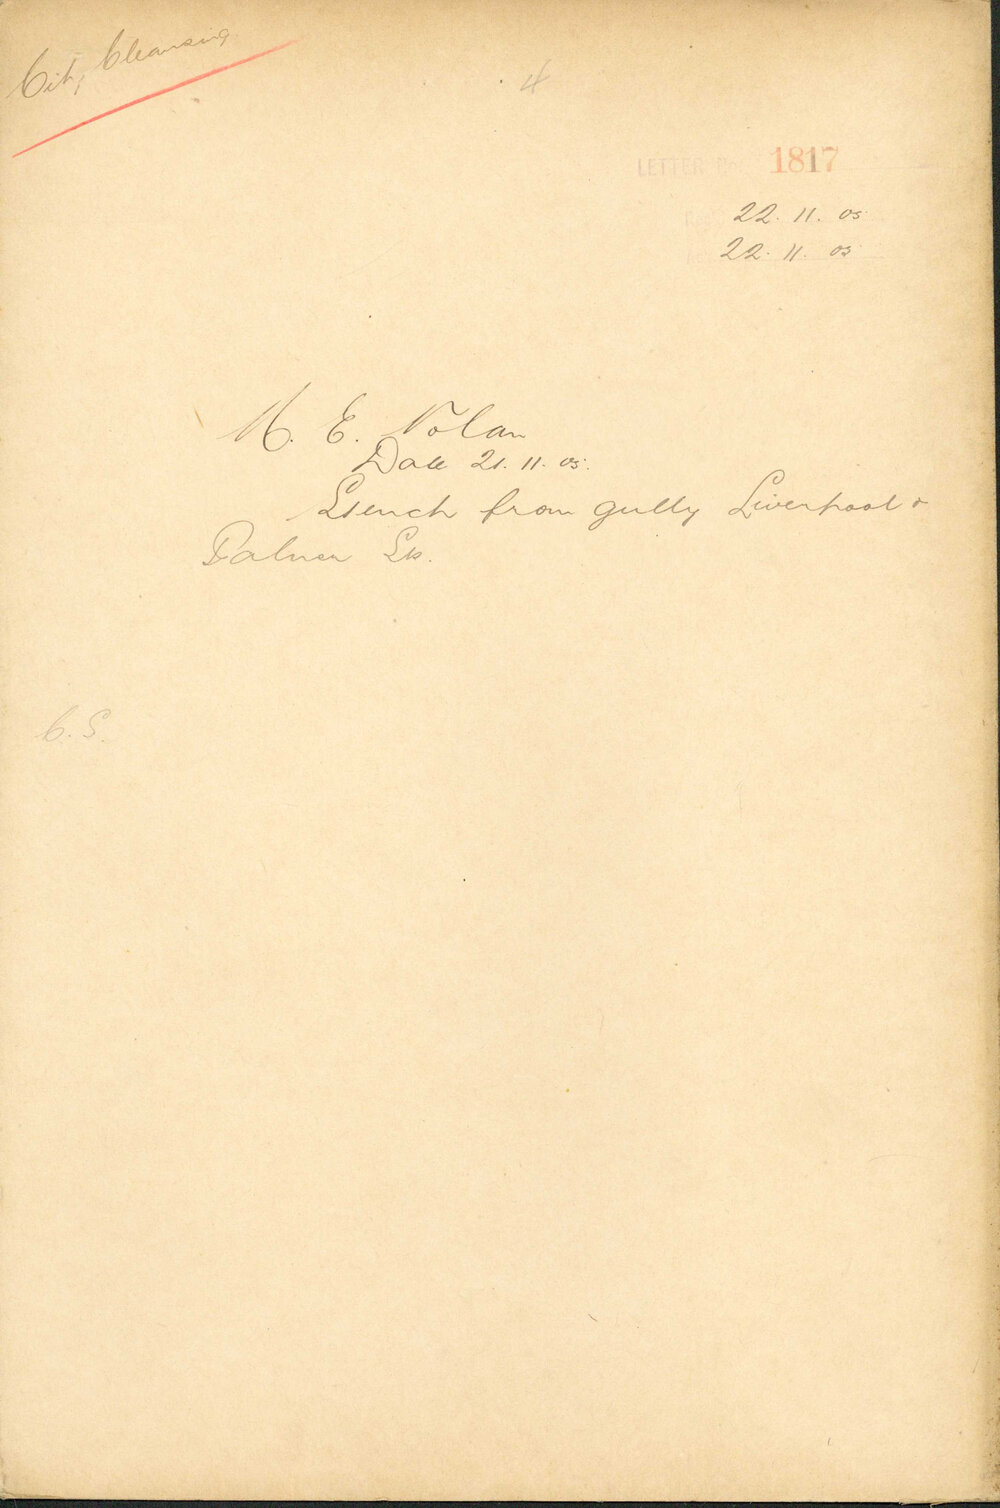 City Cleansing
4
LETTER No. 1817
22. 11. 05
22. 11. 05
M. E. Nolan
Date 21. 11. 05.
Stench from gully Liverpool &
Palmer Sts.
C. S.